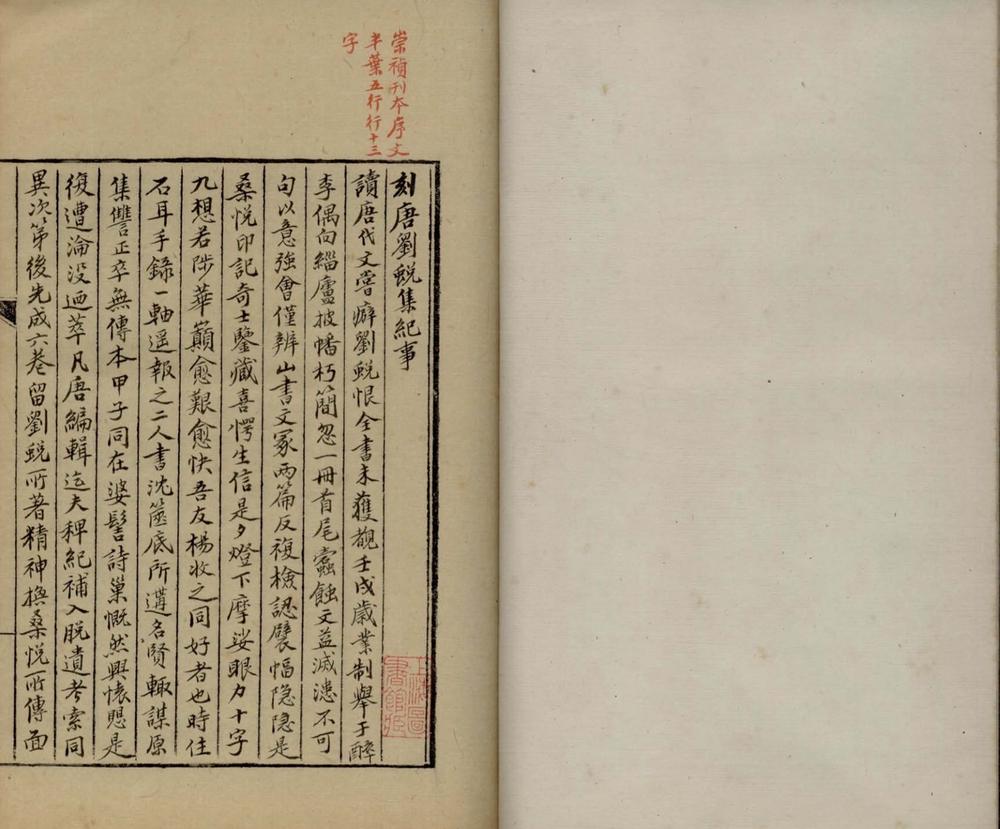 崇禎刊本序文
半葉五行行十三
字
刻唐劉蛻集紀事
讀唐代文嘗癖劉蛻恨全書未獲覩壬戌歲業制舉于醉
李偶向緇廬披幡朽簡忽一冊首尾蠹蝕文益滅漶不可
句以意強會僅辨山書文冢兩篇反複檢認襞幅隐隐是
桑悦印記奇士鑒藏喜愕生信是夕燈下摩娑眼力十字
九想若陟華巔愈艱愈快吾友楊收之同好者也時住
石耳手錄一軸遥報之二人書沈篋底所遘名賢輙謀原
集讐正卒無傳本甲子同在婆髻詩巢慨然興懐愳是
復遭淪没廼萃凡唐編輯迄夫稗紀補入脱遺考索同
異次第後先成六卷留劉蛻所著精神撫桑悦所傳面
上海圖
書館藏